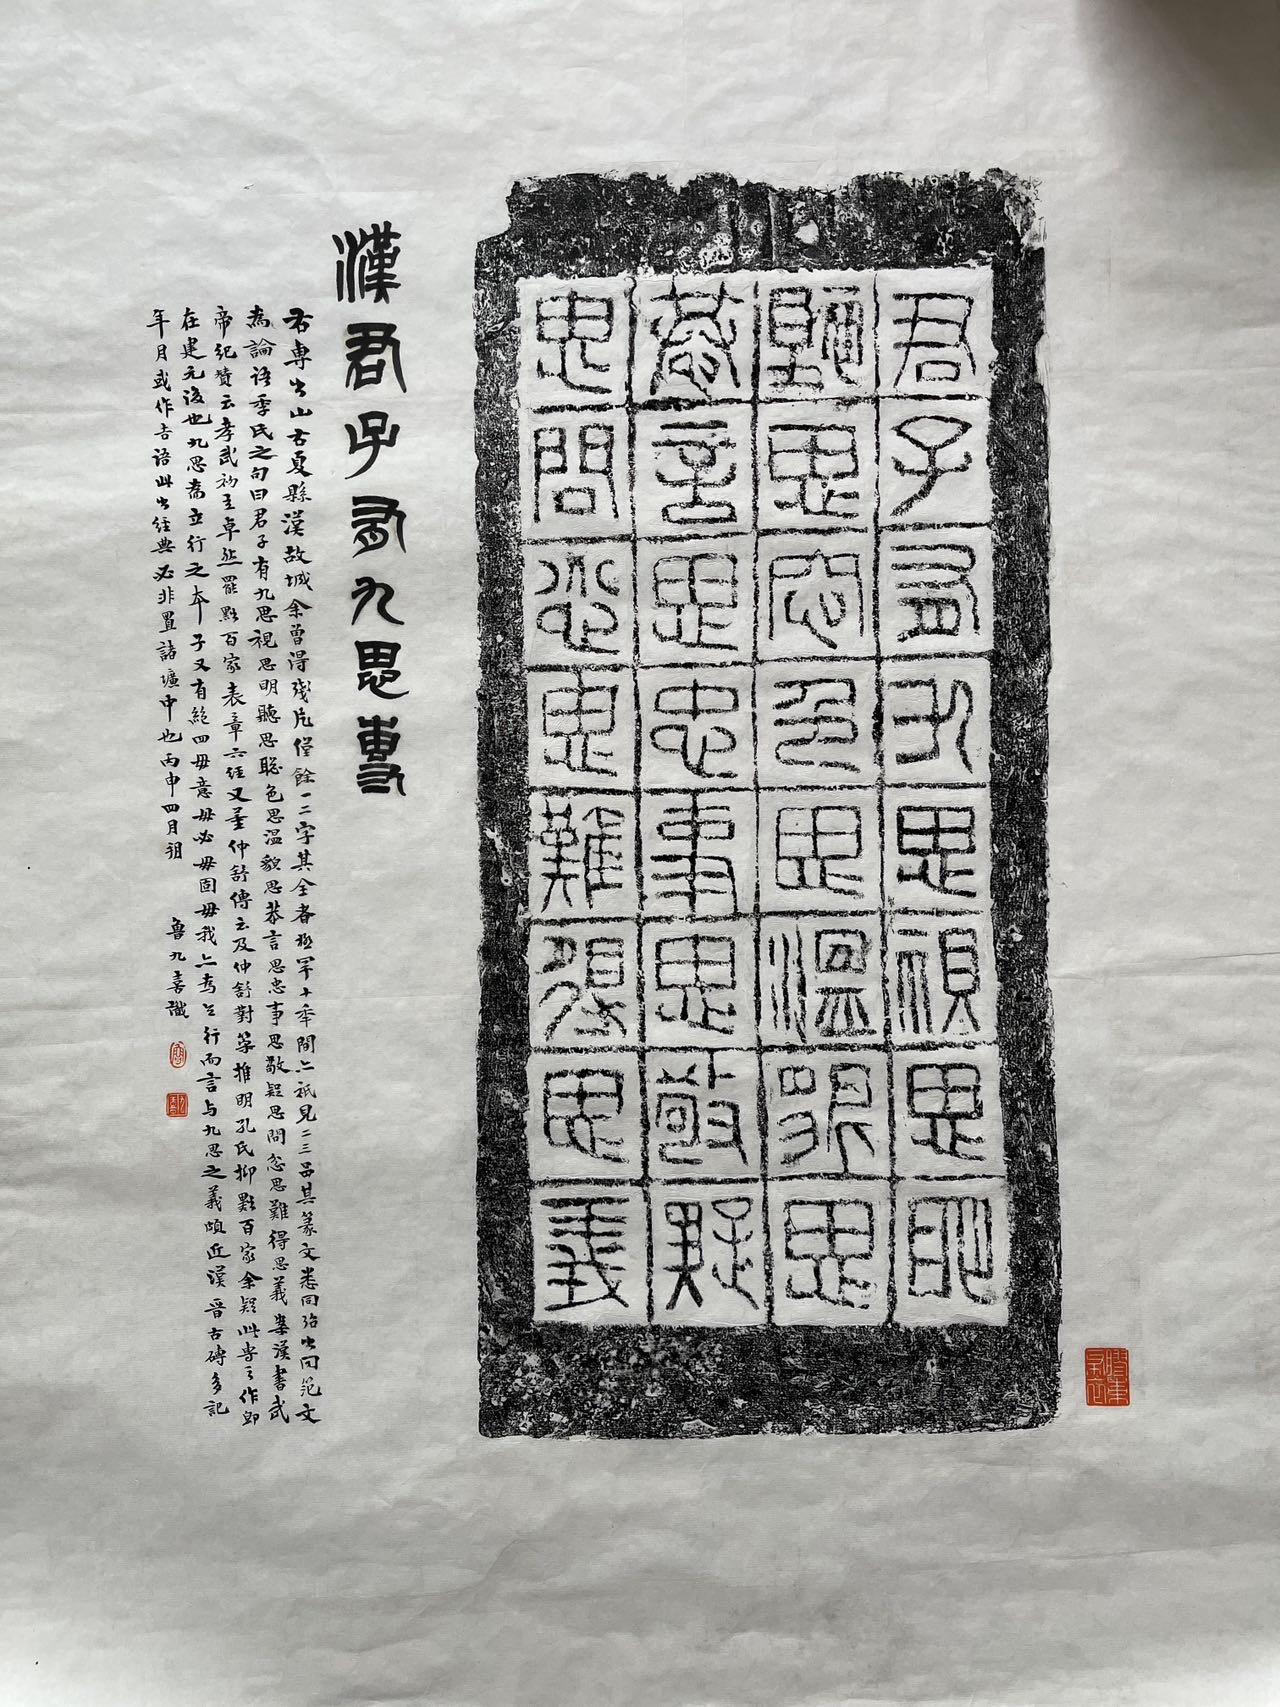 君子有九思視思明
聽思聰色思溫貌思
恭言思忠事思敬疑
思問忿思難得思義
漢君子有九思專
右専出山右夏縣漢故城余曾得殘片僅餘一二字其全者極罕十年間亦祇見二三品其篆文悉同殆出同范文
為論語季氏之句曰君子有九思視思明聽思聰色思溫貌思恭言思忠事思敬疑思問忿思難得思義案漢書武
帝紀贊云孝武初立卓然罷黜百家表章六經又董仲舒傳云及仲舒對策推明孔氏抑黜百家余疑此専之作即
在建元後也九思為立行之本子又有絕四毋意毋必毋固毋我亦為立行而言与九思之義頗近漢晉古磚多記
年月或作吉語此出經典必非置諸壙中也丙申四月朔
魯九喜識